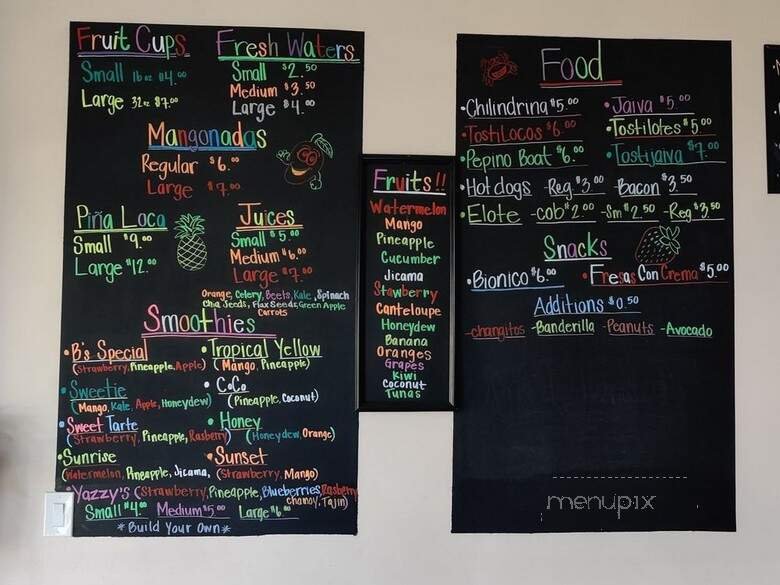 Fruit Cups
Small 16oz $4.00
Large 32oz $7.00
Fresh Waters
Small $2.50
Medium $3.50
Large $4.00
Mangonadas
Regular $6.00
Large $7.00
Piña Loca
Small $9.00
Large $12.00
Juices
Small $5.00
Medium $6.00
Large $7.00
Orange, Celery, Beets, Kale, Spinach
Chia Seeds, Flax Seeds, Green Apple
Carrots
Smoothies
• B's Special
(Strawberry, Pineapple, Apple)
• Tropical Yellow
(Mango, Pineapple)
• Sweetie
(Mango, Kale, Apple, Honeydew)
• CoCo
(Pineapple, Coconut)
• Sweet Tarte
(Strawberry, Pineapple, Rasberry)
• Honey
(Honeydew, Orange)
• Sunrise
(Watermelon, Pineapple, Jicama,
• Sunset
(Strawberry, Mango)
• Yazzy's (Strawberry, Pineapple, Blueberries, Rasberry
chamoy, Tajin)
Small $4.00 Medium $5.00 Large $6.00
*Build Your Own*
Fruits!!
Watermelon
Mango
Pineapple
Cucumber
Jicama
Stawberry
Canteloupe
Honeydew
Banana
Oranges
Grapes
Kiwi
Coconut
Tunas
Food
• Chilindrina $5.00 • Jaiva $5.00
• TostiLocos $6.00 • Tostilotes $5.00
• Pepino Boat $6.00 • Tostijaiva $7.00
• Hot dogs -Reg $3.00 -Bacon $3.50
• Elote -cob $2.00 -Sm $2.50 -Reg $3.50
Snacks
• Bionico $6.00 • Fresas Con Crema $5.00
Additions $0.50
-changitos -Banderilla -Peanuts -Avocado
menupix